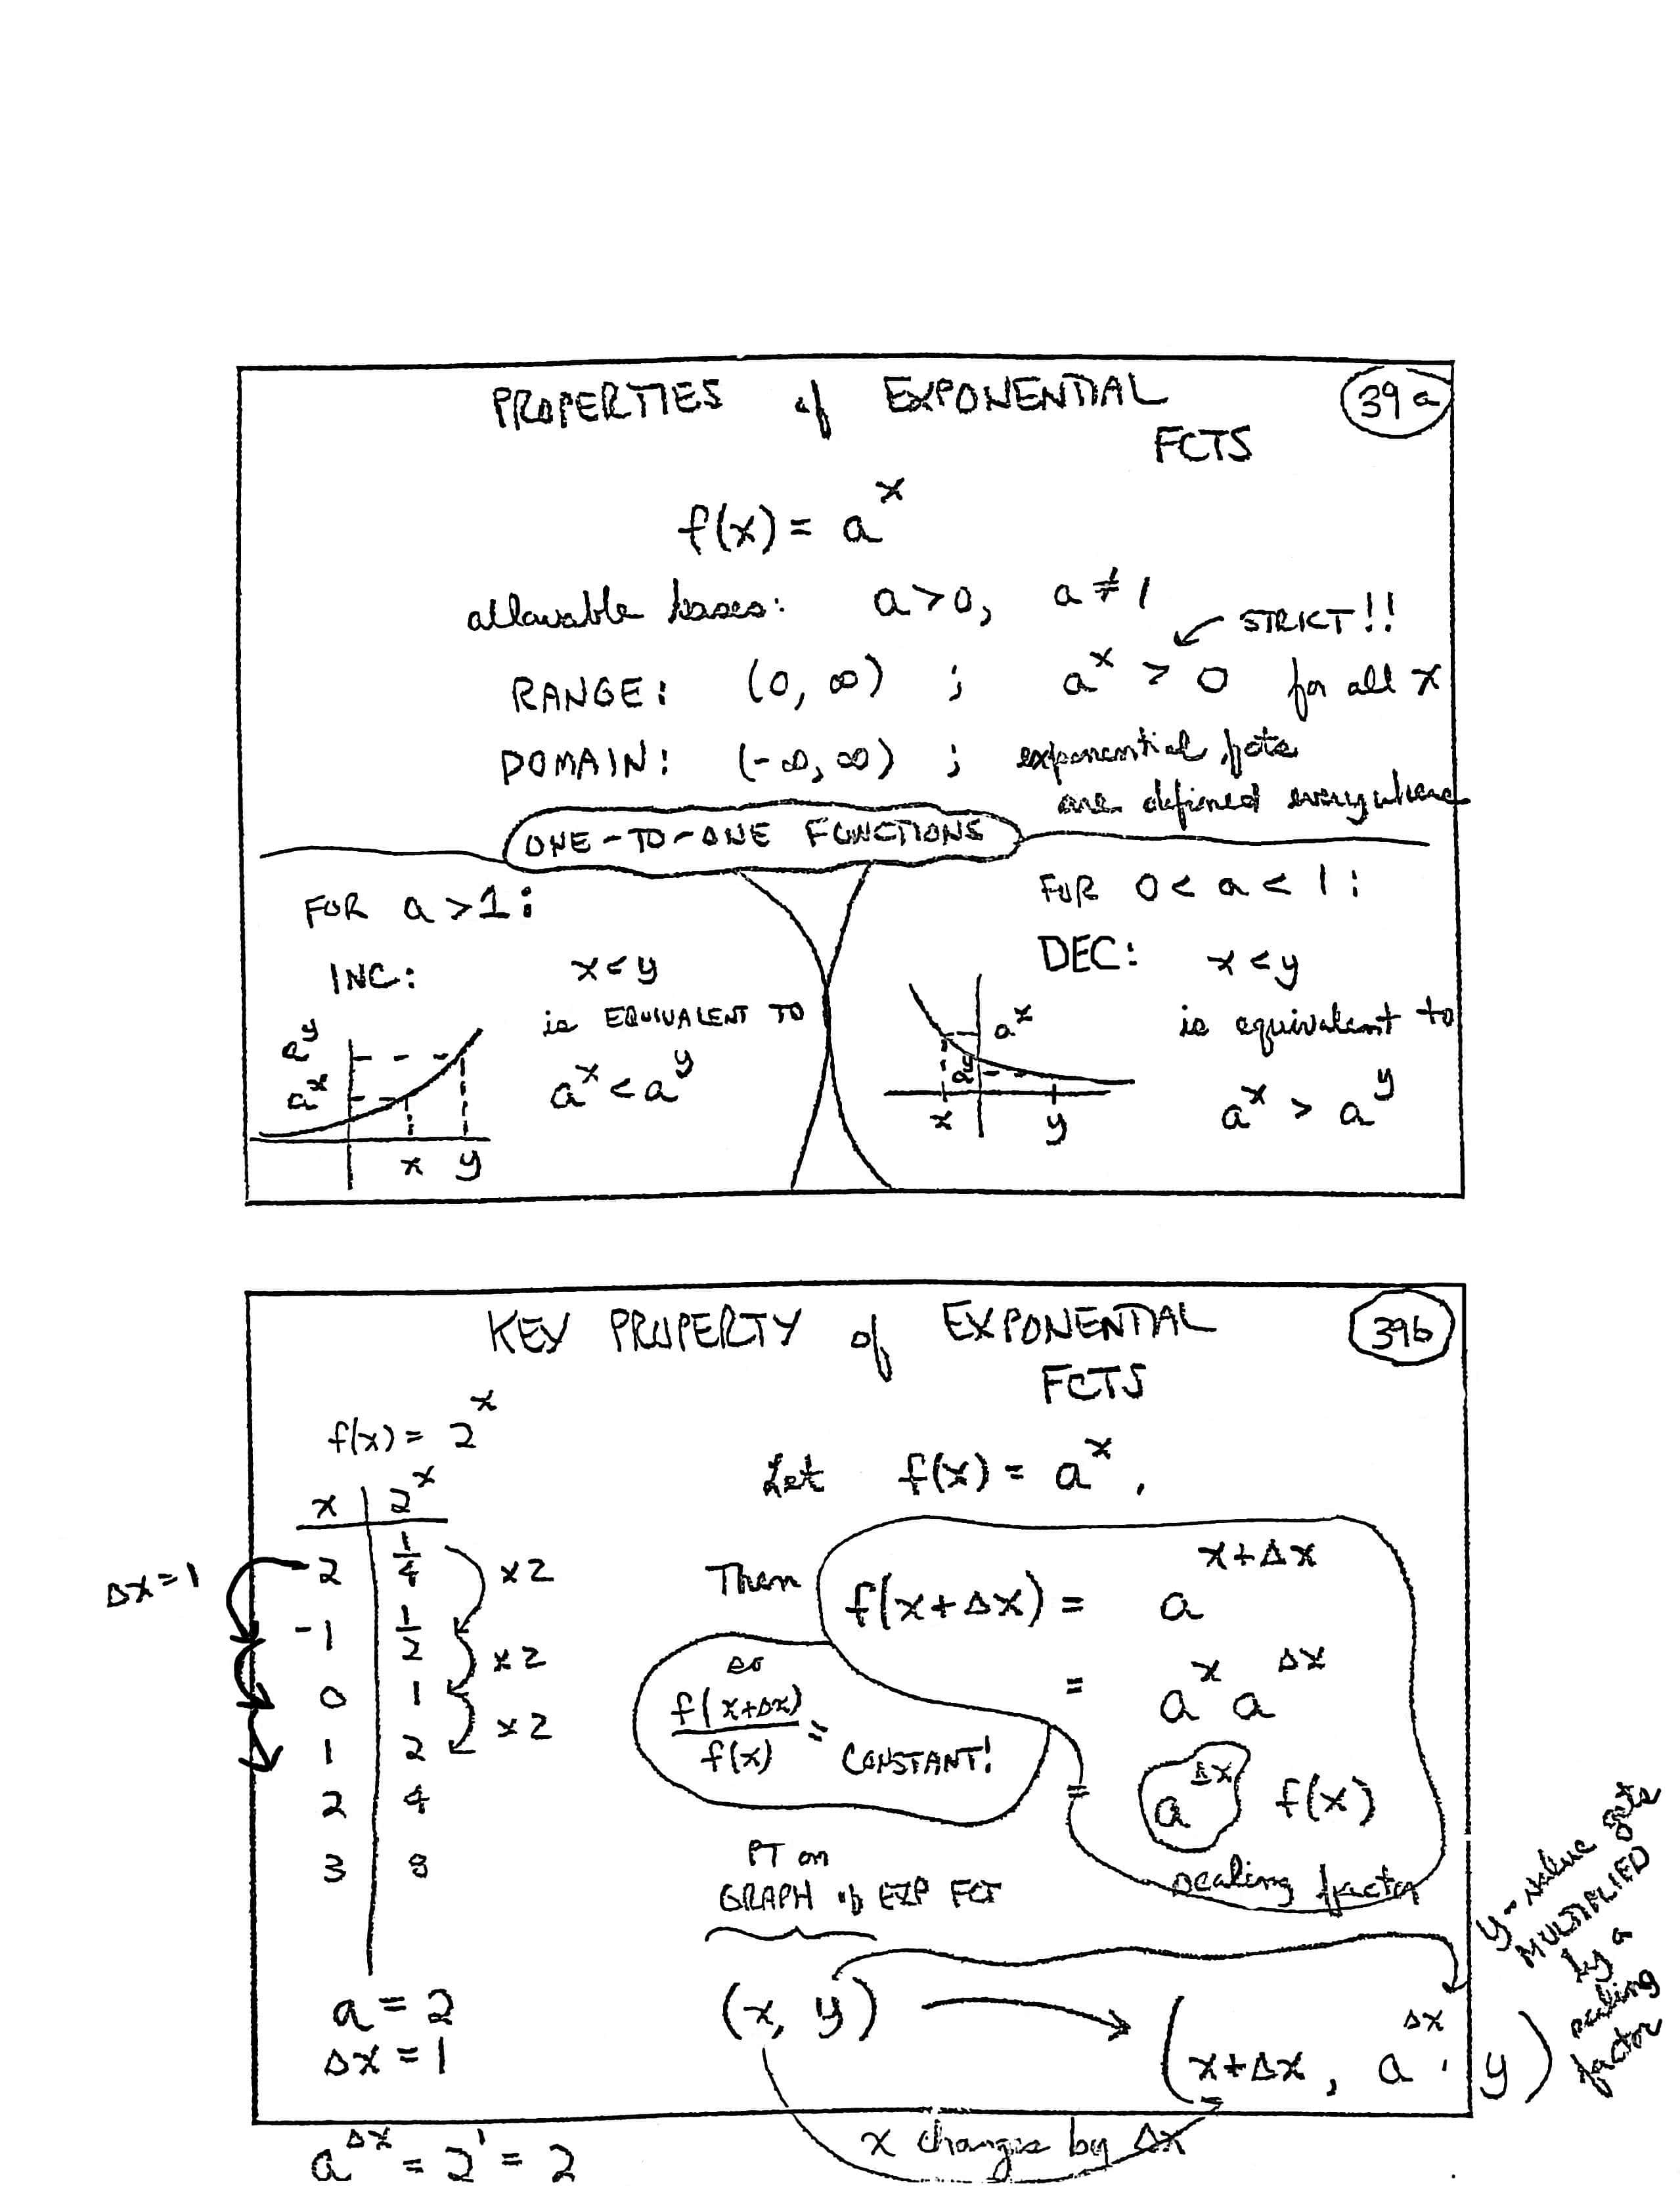 PROPERTIES of EXPONENTIAL
FCTS
39a
f(x) = a^x
allowable bases: a>0, a≠1
STRICT!!
RANGE: (0, ∞) ; a^x > 0 for all x
DOMAIN: (-∞, ∞) ; exponential fcts
are defined everywhere
ONE-TO-ONE FUNCTIONS
FOR a>1:
INC: x<y
is EQUIVALENT TO
a^x < a^y
a^y
a^x
x y
FOR 0<a<1:
DEC: x<y
is equivalent to
a^x > a^y
a^x
a^y
x y
KEY PROPERTY of EXPONENTIAL
FCTS
39b
f(x) = 2^x
x 2^x
-2 1/4
-1 1/2
0 1
1 2
2 4
3 8
Δx=1
x2
x2
x2
a = 2
Δx = 1
a^Δx = 2^1 = 2
Let f(x) = a^x.
Then f(x+Δx) = a^(x+Δx)
= a^x a^Δx
= a^Δx f(x)
scaling factor
so
f(x+Δx)/f(x) = CONSTANT!
PT on
GRAPH of EXP FCT
(x, y) → (x+Δx, a^Δx · y)
x changes by Δx
y-value gets
MULTIPLIED
by a
scaling
factor